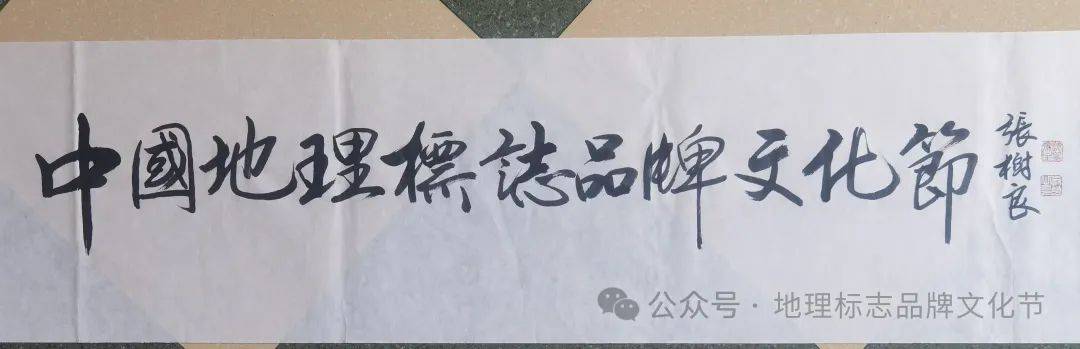 中國地理標誌品牌文化節
張樹良
公众号·地理标志品牌文化节